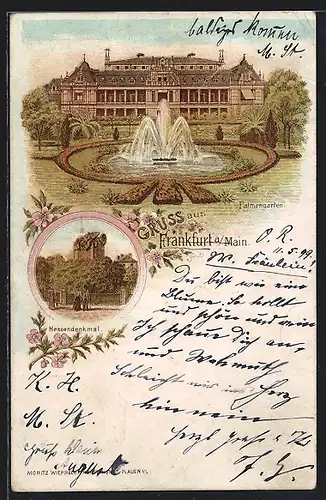 baldiges Kommen
M. St.
Palmengarten.
GRUSS aus
Frankfurt a/Main.
O. R.
11.5.99.
W. Fräulein!
Du bist wie eine
Blume. So hold
und schön und rein
Ich schau dich an,
und Wehmuth
Schleicht mir ins Herz
hinein
Hessendenkmal.
K. H.
M. St.
Gruß
August
MORITZ WIEPRECHT PLAUEN i/V.